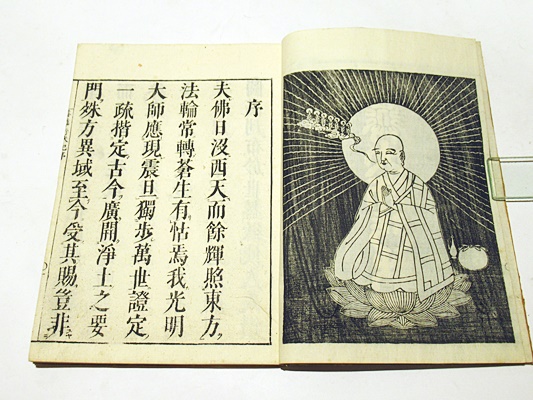 序
夫佛日沒西天而餘輝照東方
法輪常轉蒼生有怙焉我光明
大師應現震旦獨步萬世證定
一疏揩定古今廣開淨土之要
門殊方異域至今受其賜豈非